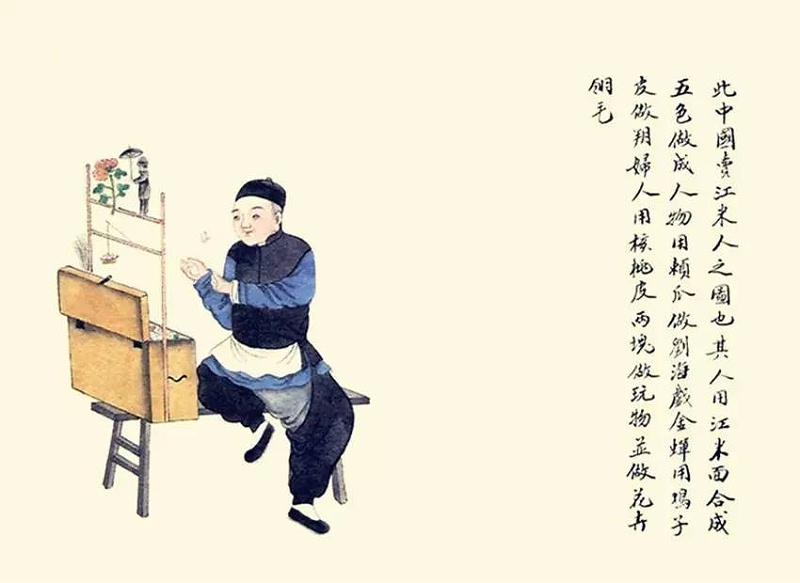 此中國賣江米人之圖也其人用江米面合成
五色做成人物用賴瓜做劉海戲金蟬用鳩子
皮做翔婦人用核桃皮兩塊做玩物並做花卉
翎毛